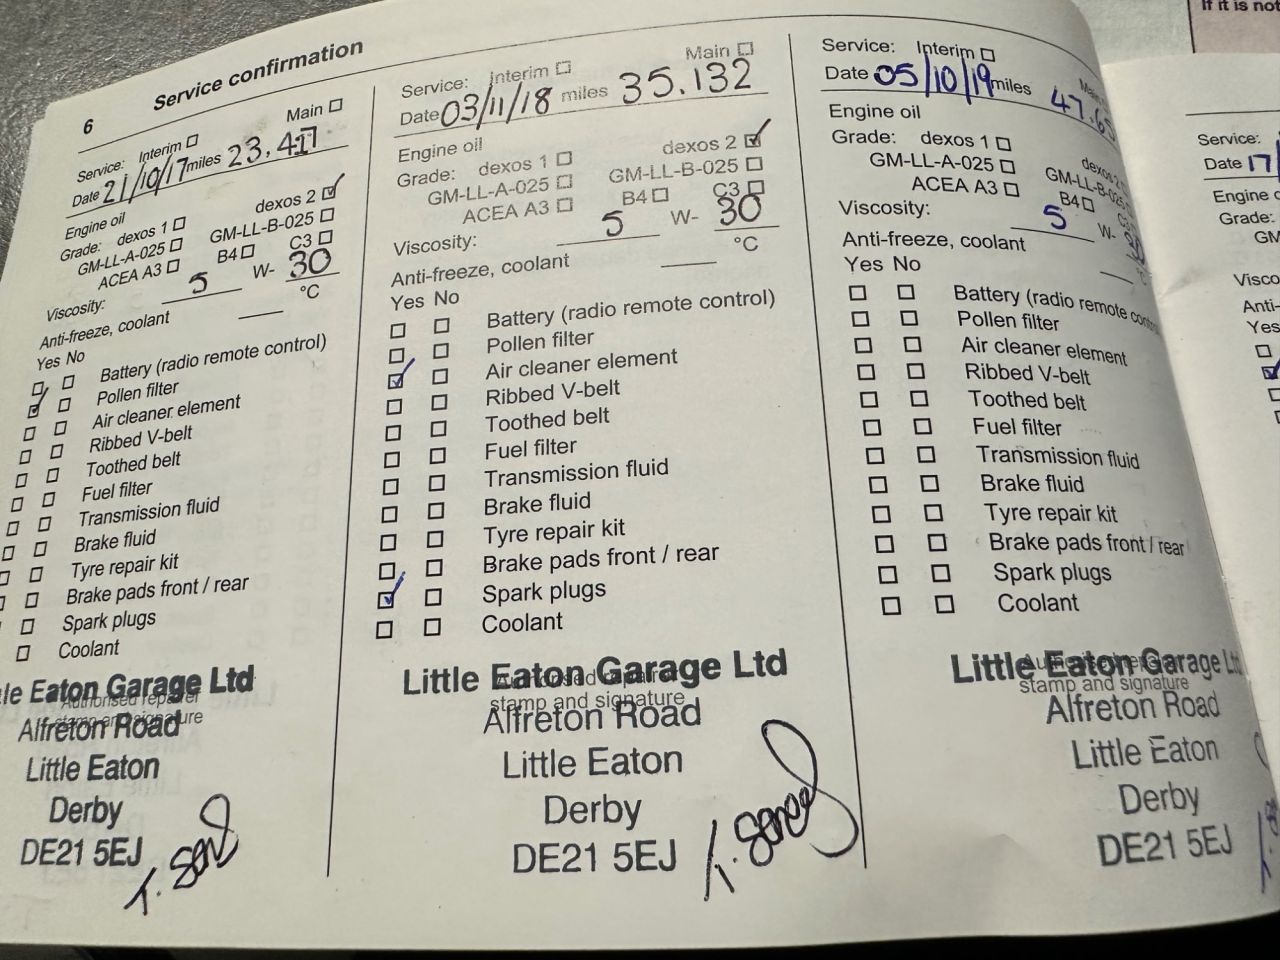 If it is not
6
Service confirmation
Service: Interim Main
Date 21/10/17 miles 23.417
Engine oil
Grade: dexos 1 dexos 2
GM-LL-A-025 GM-LL-B-025
ACEA A3 B4 C3
Viscosity: 5 W- 30
Anti-freeze, coolant °C
Yes No
Battery (radio remote control)
Pollen filter
Air cleaner element
Ribbed V-belt
Toothed belt
Fuel filter
Transmission fluid
Brake fluid
Tyre repair kit
Brake pads front / rear
Spark plugs
Coolant
le Eaton Garage Ltd
Authorised repairer
stamp and signature
Alfreton Road
Little Eaton
Derby
DE21 5EJ
Service: Interim Main
Date 03/11/18 miles 35.132
Engine oil
Grade: dexos 1 dexos 2
GM-LL-A-025 GM-LL-B-025
ACEA A3 B4 C3
Viscosity: 5 W- 30
Anti-freeze, coolant °C
Yes No
Battery (radio remote control)
Pollen filter
Air cleaner element
Ribbed V-belt
Toothed belt
Fuel filter
Transmission fluid
Brake fluid
Tyre repair kit
Brake pads front / rear
Spark plugs
Coolant
Little Eaton Garage Ltd
Authorised repairer
stamp and signature
Alfreton Road
Little Eaton
Derby
DE21 5EJ
Service: Interim
Date 05/10/19 miles 47.65
Engine oil
Grade: dexos 1 dexos 2
GM-LL-A-025 GM-LL-B-025
ACEA A3 B4 C3
Viscosity: 5 W- 30
Anti-freeze, coolant °C
Yes No
Battery (radio remote contro
Pollen filter
Air cleaner element
Ribbed V-belt
Toothed belt
Fuel filter
Transmission fluid
Brake fluid
Tyre repair kit
Brake pads front / rear
Spark plugs
Coolant
Little Eaton Garage Lt
stamp and signature
Alfreton Road
Little Eaton
Derby
DE21 5EJ
Service:
Date 17/
Engine o
Grade:
GM
Visco
Anti-
Yes